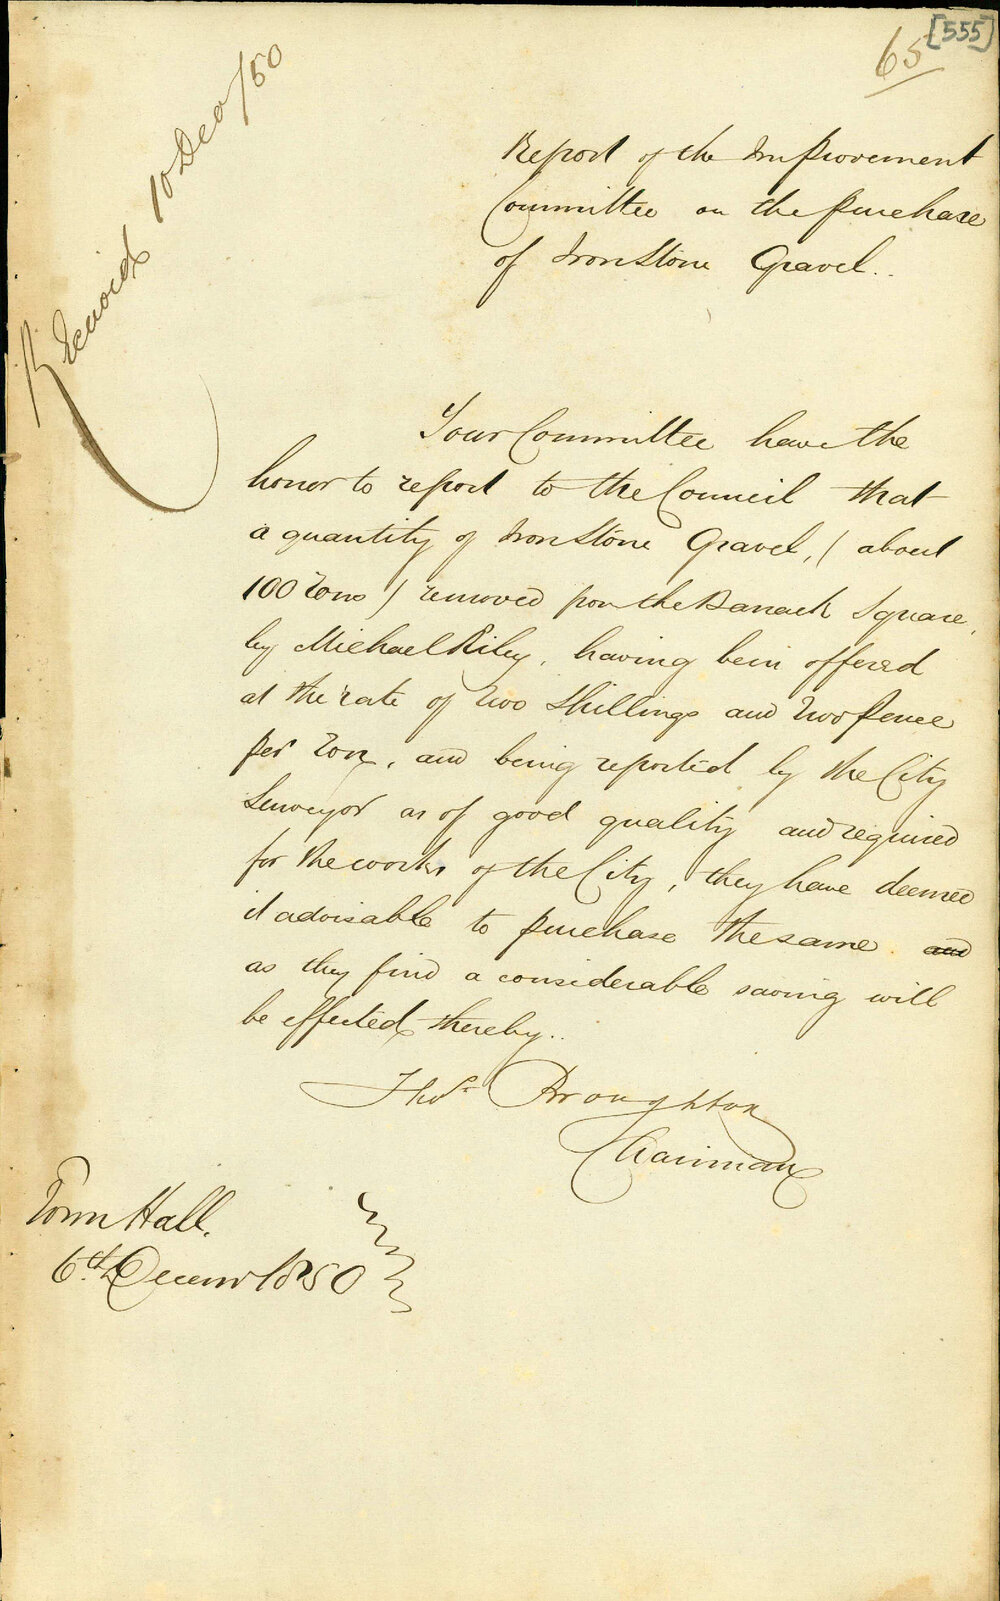 [555]
65
Received 10 Dec /50
Report of the Improvement
Committee on the purchase
of Iron Stone Gravel..
Your Committee have the
honor to report to the Council that
a quantity of Iron Stone Gravel, ( about
100 Tons ) removed from the Barrack Square,
by Michael Riley, having been offered
at the rate of Two Shillings and Two pence
per Ton, and being reported by the City
Surveyor as of good quality and required
for the works of the City, they have deemed
it advisable to purchase the same and
as they find a considerable saving will
be effected thereby..
Thos. Broughton
Chairman
Town Hall.
6th. Decemr 1850